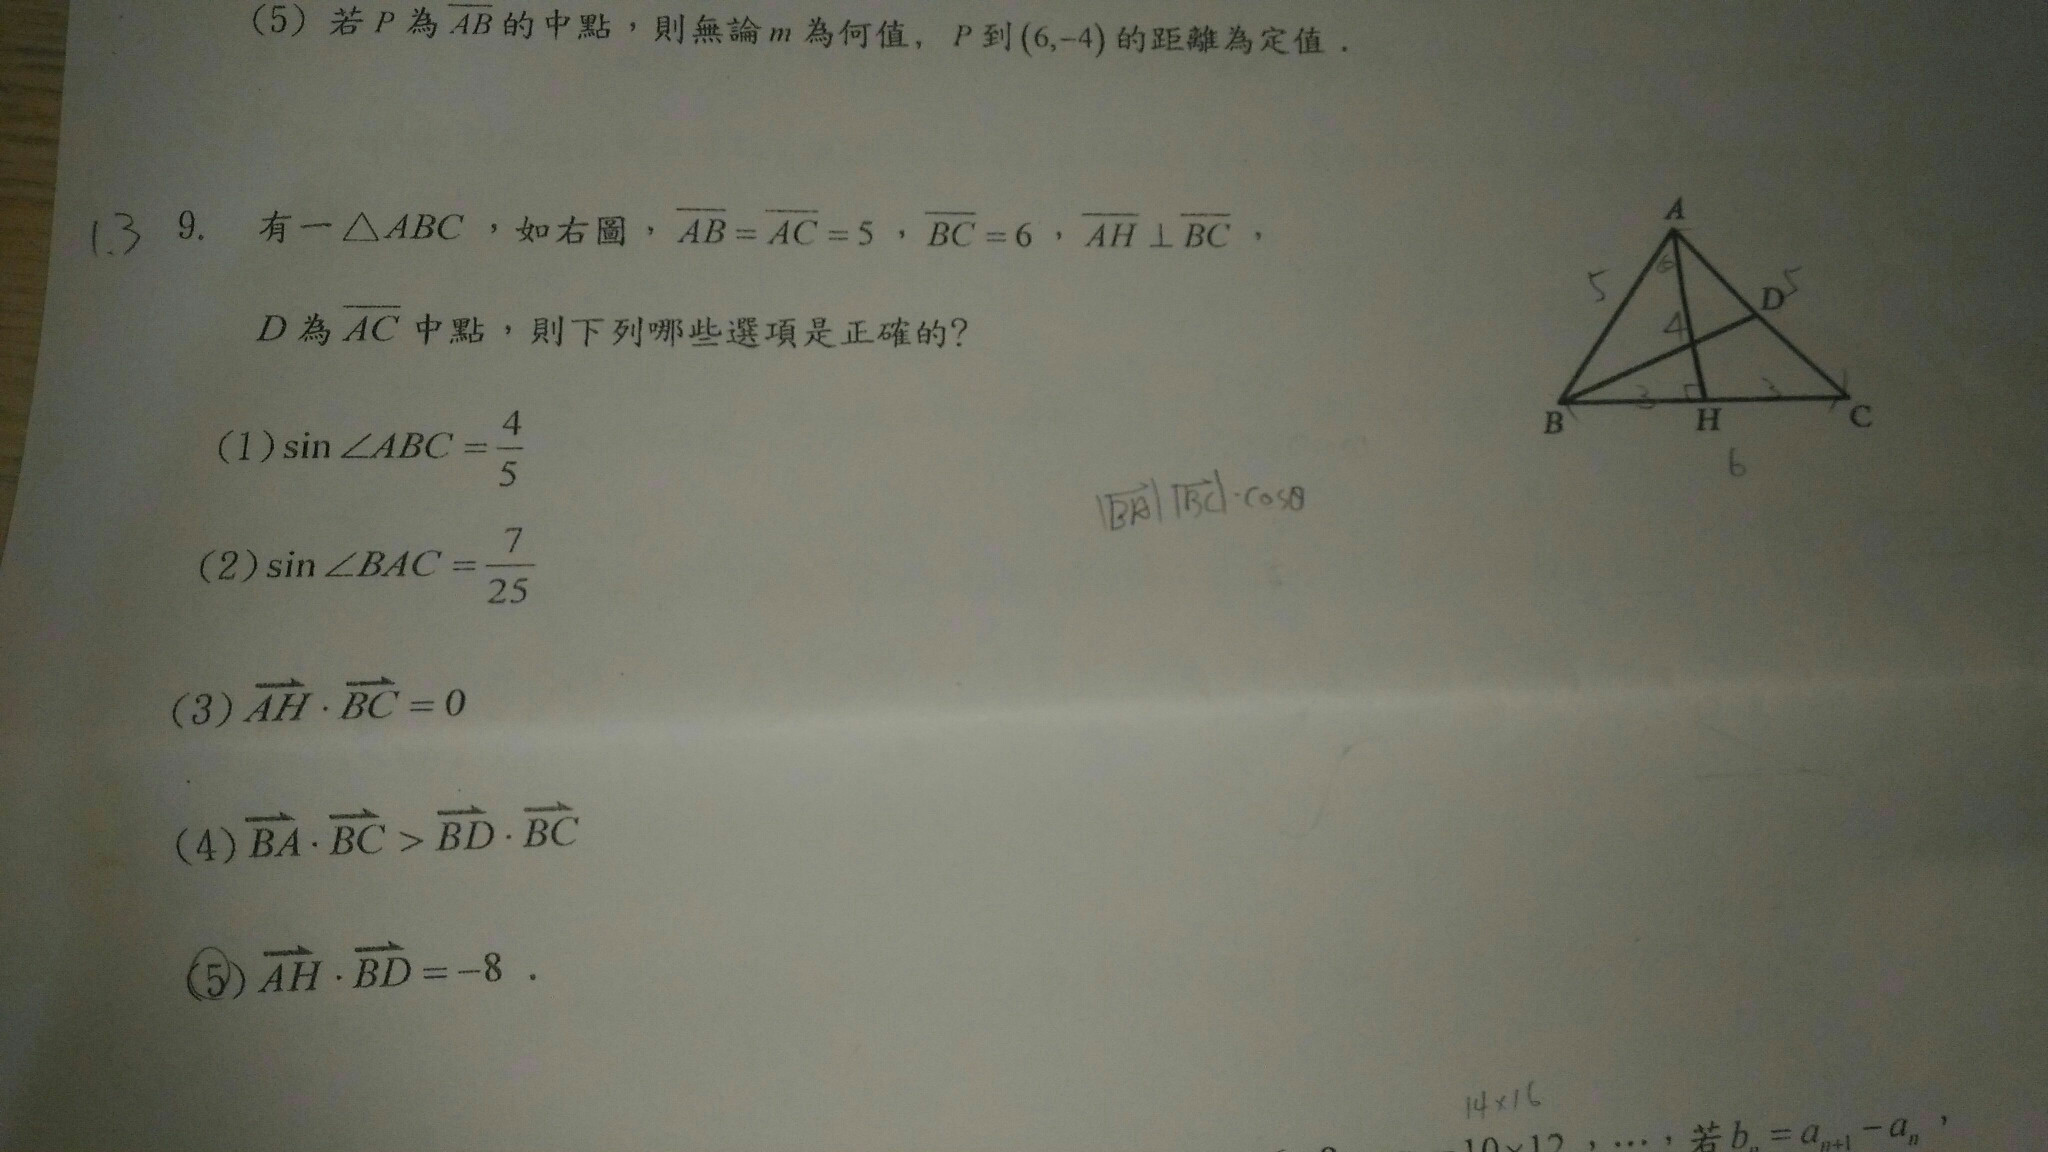 (5) 若 P 為 AB 的中點，則無論 m 為何值，P 到 (6,−4) 的距離為定值．
1.3 9. 有一 △ABC ，如右圖，AB = AC = 5 ，BC = 6 ，AH ⊥ BC ，
D 為 AC 中點，則下列哪些選項是正確的?
(1) sin ∠ABC = 4/5
(2) sin ∠BAC = 7/25
(3) AH · BC = 0
(4) BA · BC > BD · BC
(5) AH · BD = −8 .
A
5
5
D
4
3
3
B
H
C
6
|BA| |BC| · cosθ
14×16
10×12 ，…，若 bₙ = aₙ₊₁ − aₙ ，